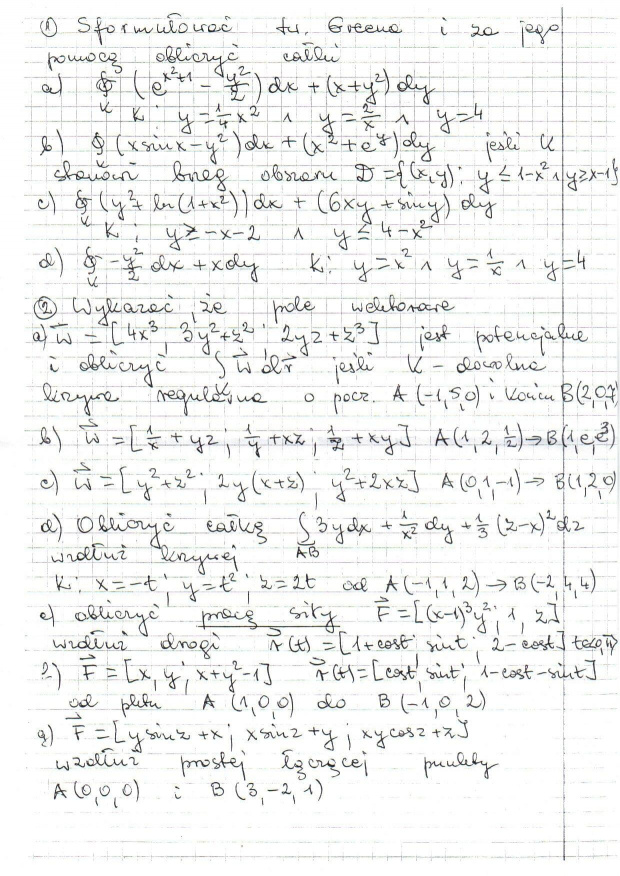 ① Sformułować tw. Greena i za jego
pomocą obliczyć całki
a) ∮_K (e^{x²+1} - y²/2) dx + (x+y²) dy
K: y = 1/4 x² ∧ y = 2/x ∧ y = 4
b) ∮_K (x sin x - y²) dx + (x² + e^y) dy jeśli K
stanowi brzeg obszaru D = {(x,y): y ≤ 1-x² ∧ y ≥ x-1}
c) ∮_K (y² + ln(1+x²)) dx + (6xy + sin y) dy
K: y ≥ -x-2 ∧ y ≤ 4-x²
d) ∮_K -y²/2 dx + x dy K: y = x² ∧ y = 1/x ∧ y = 4
② Wykazać, że pole wektorowe
a) W⃗ = [4x³, 3y²+z²; 2yz+z³] jest potencjalne
i obliczyć ∫_K W⃗ dr⃗ jeśli K - dowolna
krzywa regularna o pocz. A(-1,5,0) i końcu B(2,0,7)
b) W⃗ = [1/x + yz; 1/y + xz; 1/z + xy] A(1,2,1/2) → B(1,e,e³)
c) W⃗ = [y²+z²; 2y(x+z); y²+2xz] A(0,1,-1) → B(1,2,0)
d) Obliczyć całkę ∫_{AB} 3y dx + 1/x² dy + 1/3 (z-x)² dz
wzdłuż krzywej
K: x=-t; y=t²; z=2t od A(-1,1,2) → B(-2,4,4)
e) obliczyć pracę siły F⃗ = [(x-1)³y²; 1, z]
wzdłuż drogi r⃗(t) = [1+cost; sint; 2-cost] t∈<0,π>
f) F⃗ = [x, y; x+y²-1] r⃗(t) = [cost; sint; 1-cost-sint]
od pktu A (1,0,0) do B(-1,0,2)
g) F⃗ = [y sin z + x; x sin z + y; xy cos z + z]
wzdłuż prostej łączącej punkty
A(0,0,0) i B(3,-2,1)